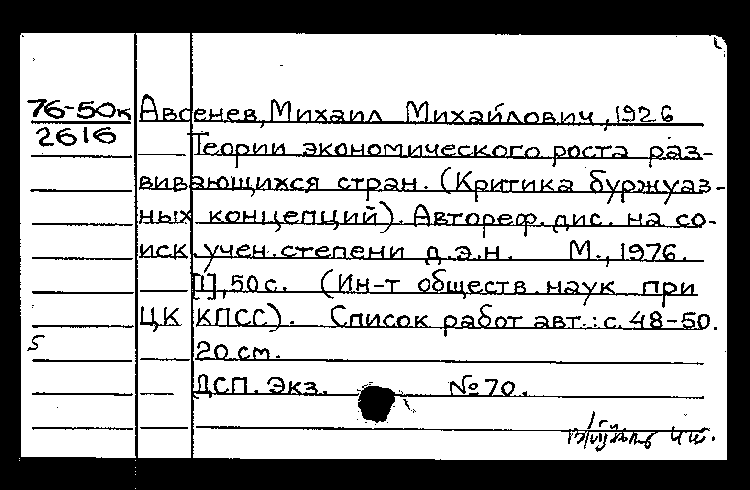 76-50к Авсенев, Михаил Михайлович, 1926
2616
Теории экономического роста раз-
вивающихся стран. (Критика буржуаз-
ных концепций). Автореф. дис. на со-
иск. учен. степени д.э.н. М., 1976.
[1], 50 с. (Ин-т обществ. наук при
ЦК КПСС). Список работ авт.: с. 48-50.
20 см.
ДСП. Экз. № 70.